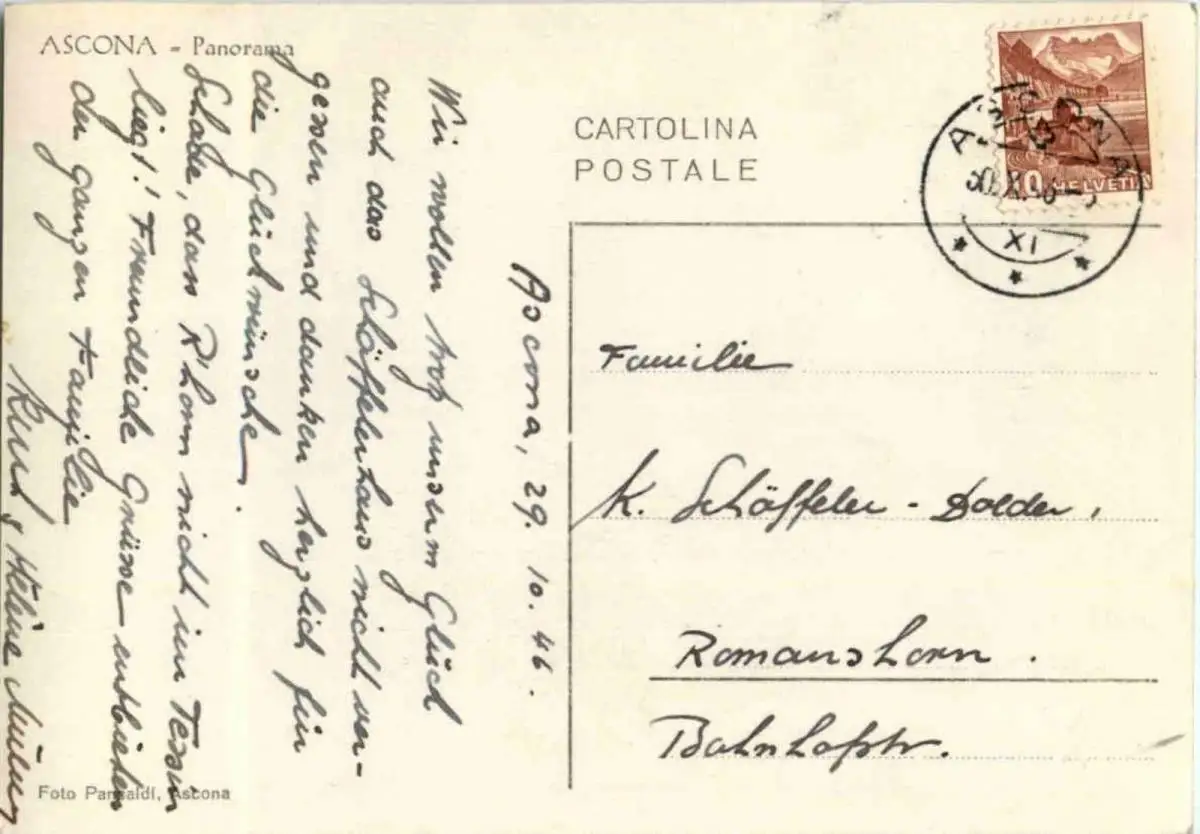 ASCONA - Panorama
CARTOLINA
POSTALE
HELVETIA
ASCONA
XI
Ascona, 29. 10. 46.
Wir wollen trotz unserm Glück
auch das Schäffelerhaus nicht ver-
gessen und danken herzlich für
die Glückwünsche.
Schade, dass R'horn nicht im Tessin
liegt! Freundliche Grüsse entbieten
der ganzen Familie
& Hélène
Familie
K. Schäffeler - Dolder,
Romanshorn.
Bahnhofstr.
Foto Pancaldi, Ascona